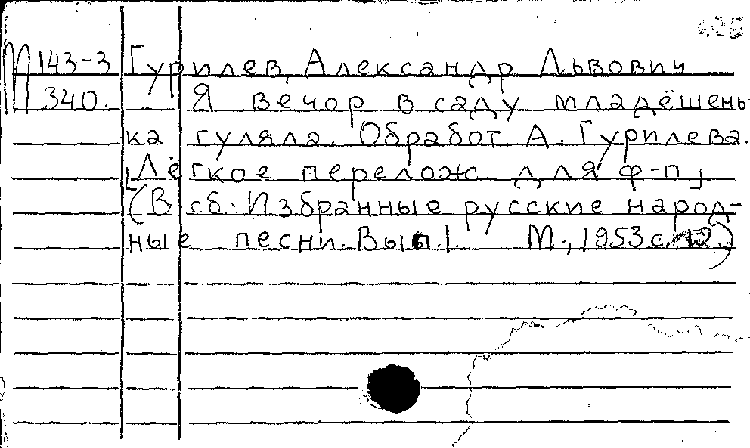 М 143-3 Гурилев, Александр Львович
340. Я вечор в саду младёшень-
ка гуляла. Обработ А. Гурилева.
[Лёгкое перелож для ф-п]
(В сб: Избранные русские народ-
ные песни. Вып. 1 М., 1953 с.